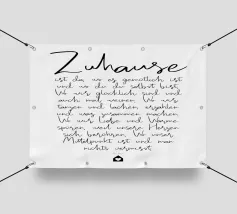 Zuhause
ist da, wo es gemütlich ist
und wo du du selbst bist.
Wo wir glücklich sind und
auch mal weinen. Wo wir
tanzen und lachen, erzählen
und was zusammen machen.
Wo wir Liebe und Wärme
spüren, weil unsere Herzen
sich berühren. Wo unser
Mittelpunkt ist und man
nichts vermisst.